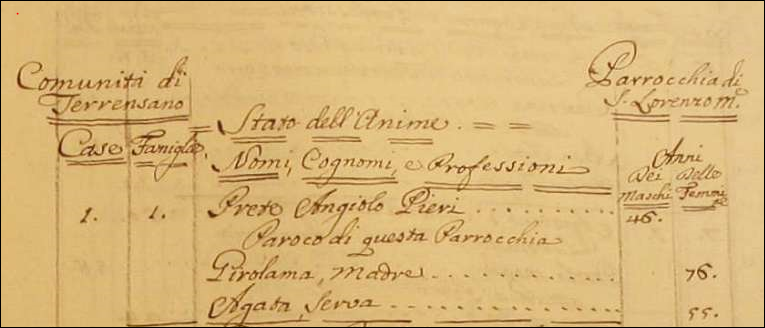 Comunità di
Terrensano
Parrocchia di
S. Lorenzo m.
= Stato dell'Anime. = =
Case Famiglie
Nomi, Cognomi, e Professioni
Anni
Dei Delle
Maschi Femmine
1. 1. Prete Angiolo Pieri . . . . . . . . . . 46.
Paroco di questa Parrocchia
Girolama, Madre . . . . . . . . . . . . 76.
Agata, Serva . . . . . . . . . . . . . . 55.